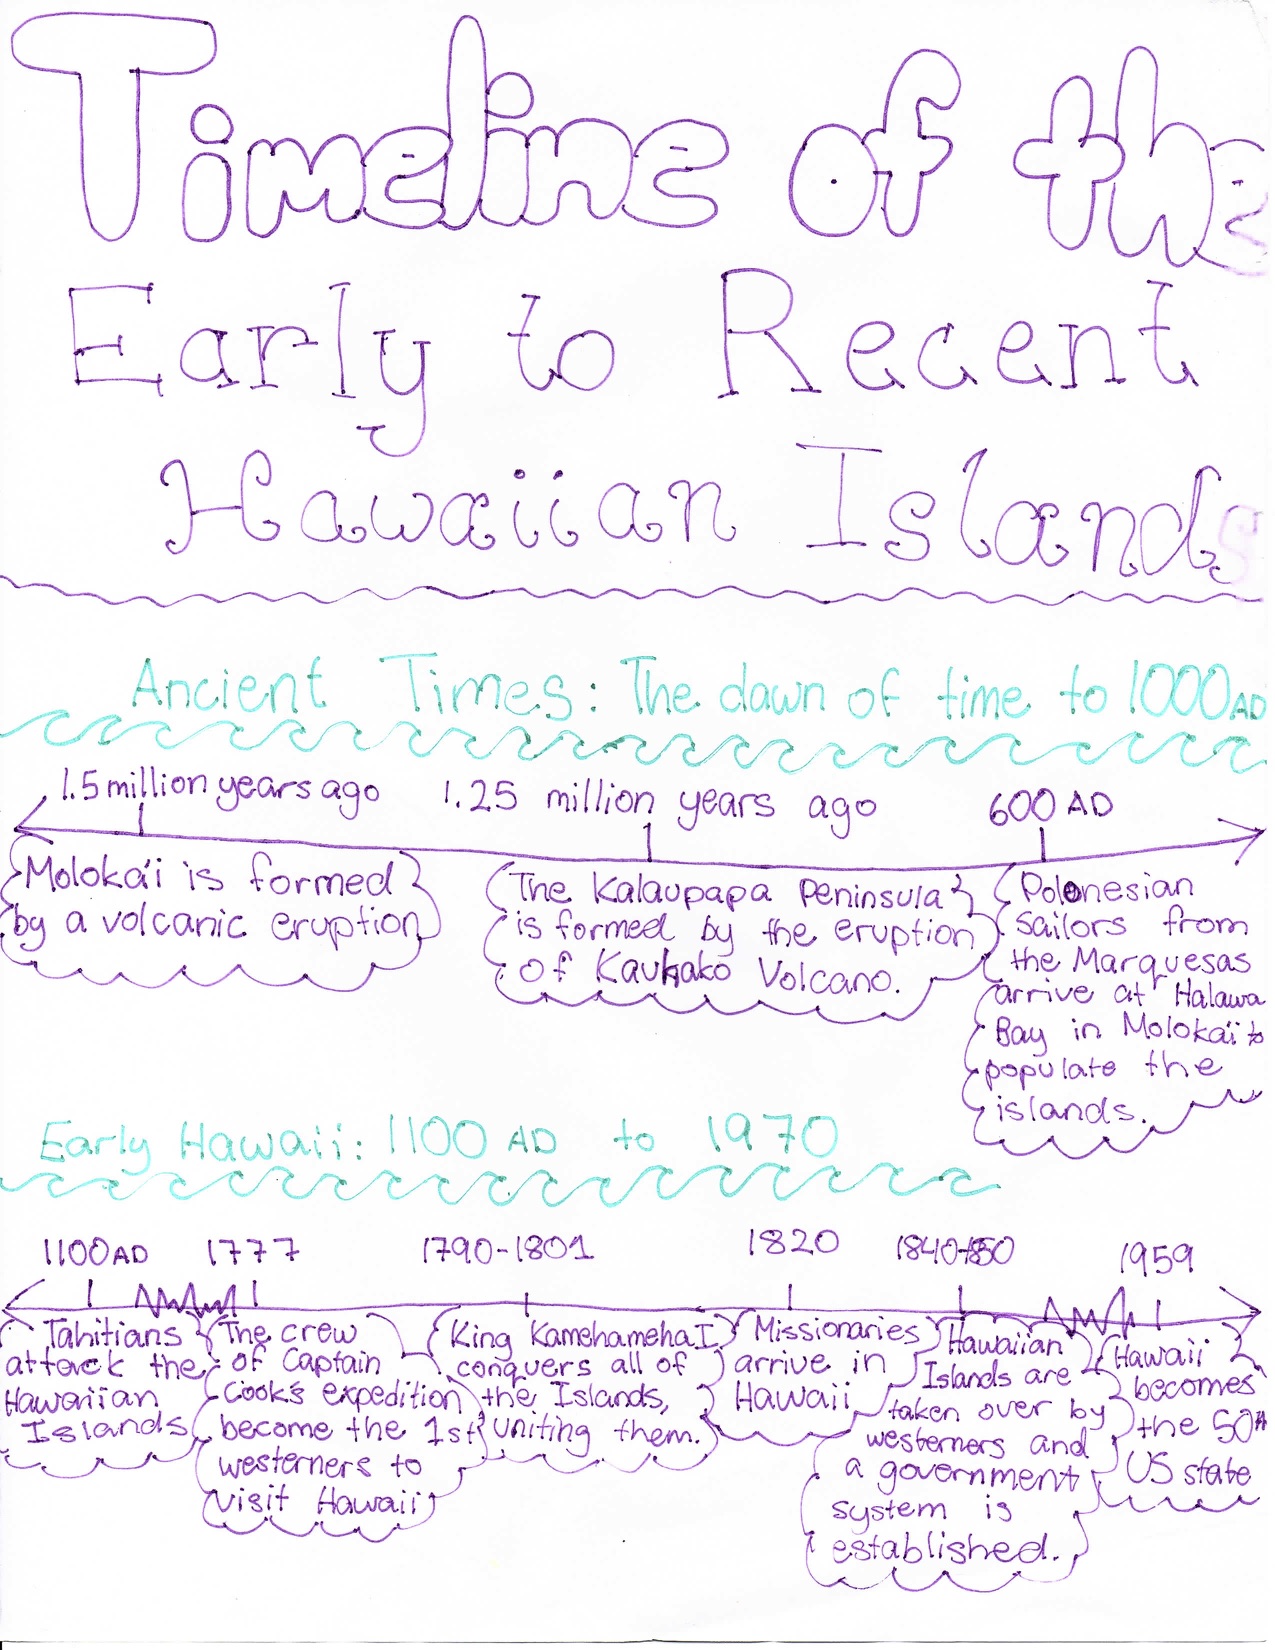 Timeline of the
Early to Recent
Hawaiian Islands
Ancient Times: The dawn of time to 1000 AD
1.5 million years ago
1.25 million years ago
600 AD
Moloka'i is formed
by a volcanic eruption
The Kalaupapa Peninsula
is formed by the eruption
of Kauhako Volcano.
Polonesian
sailors from
the Marquesas
arrive at Halawa
Bay in Moloka'i to
populate the
islands.
Early Hawaii: 1100 AD to 1970
1100 AD
1777
1790-1801
1820
1840-1850
1959
Tahitians
attack the
Hawaiian
Islands
The crew
of Captain
Cook's expedition
become the 1st
westerners to
visit Hawaii
King Kamehameha I
conquers all of
the Islands,
uniting them.
Missionaries
arrive in
Hawaii
Hawaiian
Islands are
taken over by
westerners and
a government
system is
established.
Hawaii
becomes
the 50th
US state